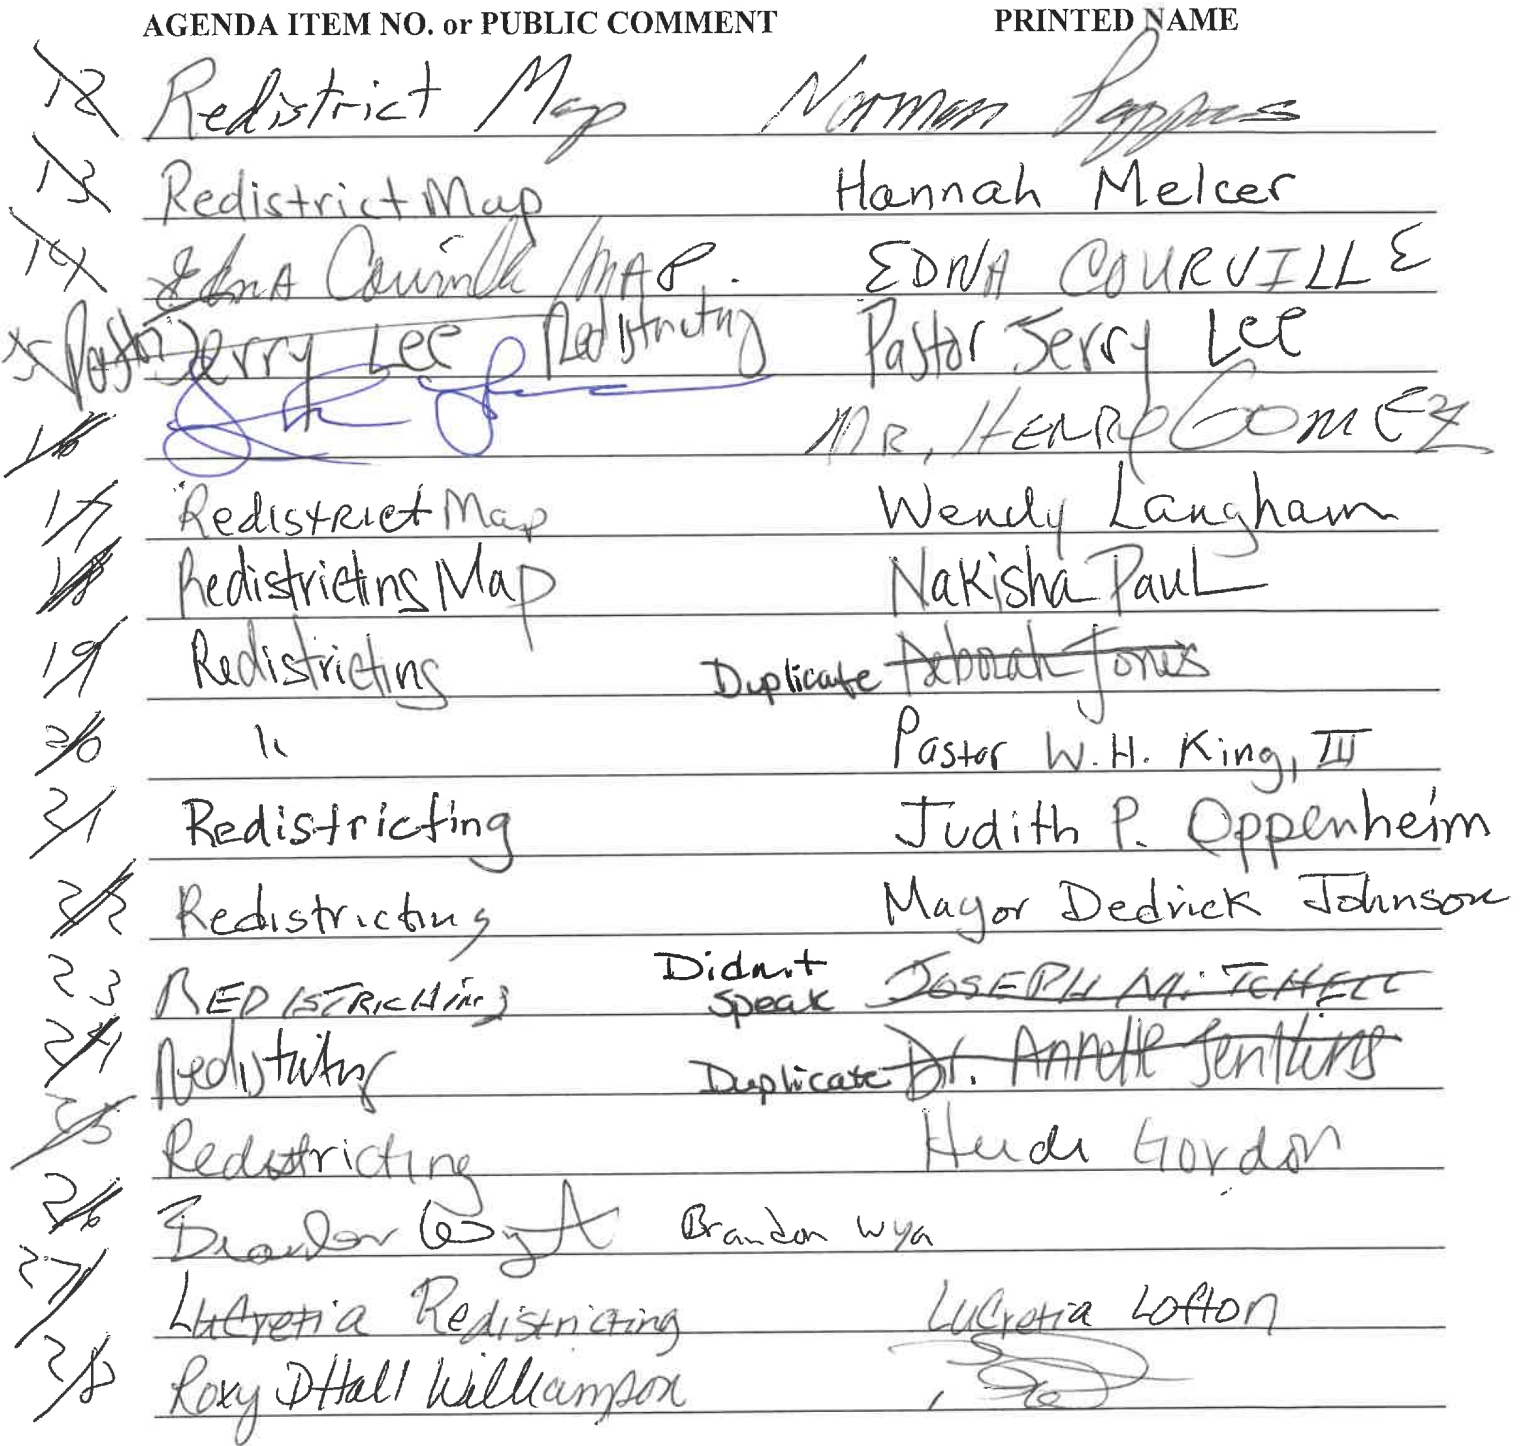 AGENDA ITEM NO. or PUBLIC COMMENT PRINTED NAME
12 Redistrict Map Norman Pappas
13 Redistrict Map Hannah Melcer
14 Edna Courville / MAP. EDNA COURVILLE
15 Pastor Jerry Lee Redistricting Pastor Jerry Lee
16 MR. HENRY GOMEZ
17 Redistrict Map Wendy Langham
18 Redistricting Map Nakisha Paul
19 Redistricting Duplicate Deborah Jones
20 " Pastor W.H. King, III
21 Redistricting Judith P. Oppenheim
22 Redistricting Mayor Dedrick Johnson
23 REDISTRICTING Didn't Speak JOSEPH MITCHELL
24 Redistricting Duplicate Dr. Annette Jenkins
25 Redistricting Heidi Gordon
26 Brandon Wyatt Brandon Wya
27 Lucretia Redistricting Lucretia Lofton
28 Roxy D Hall Williamson